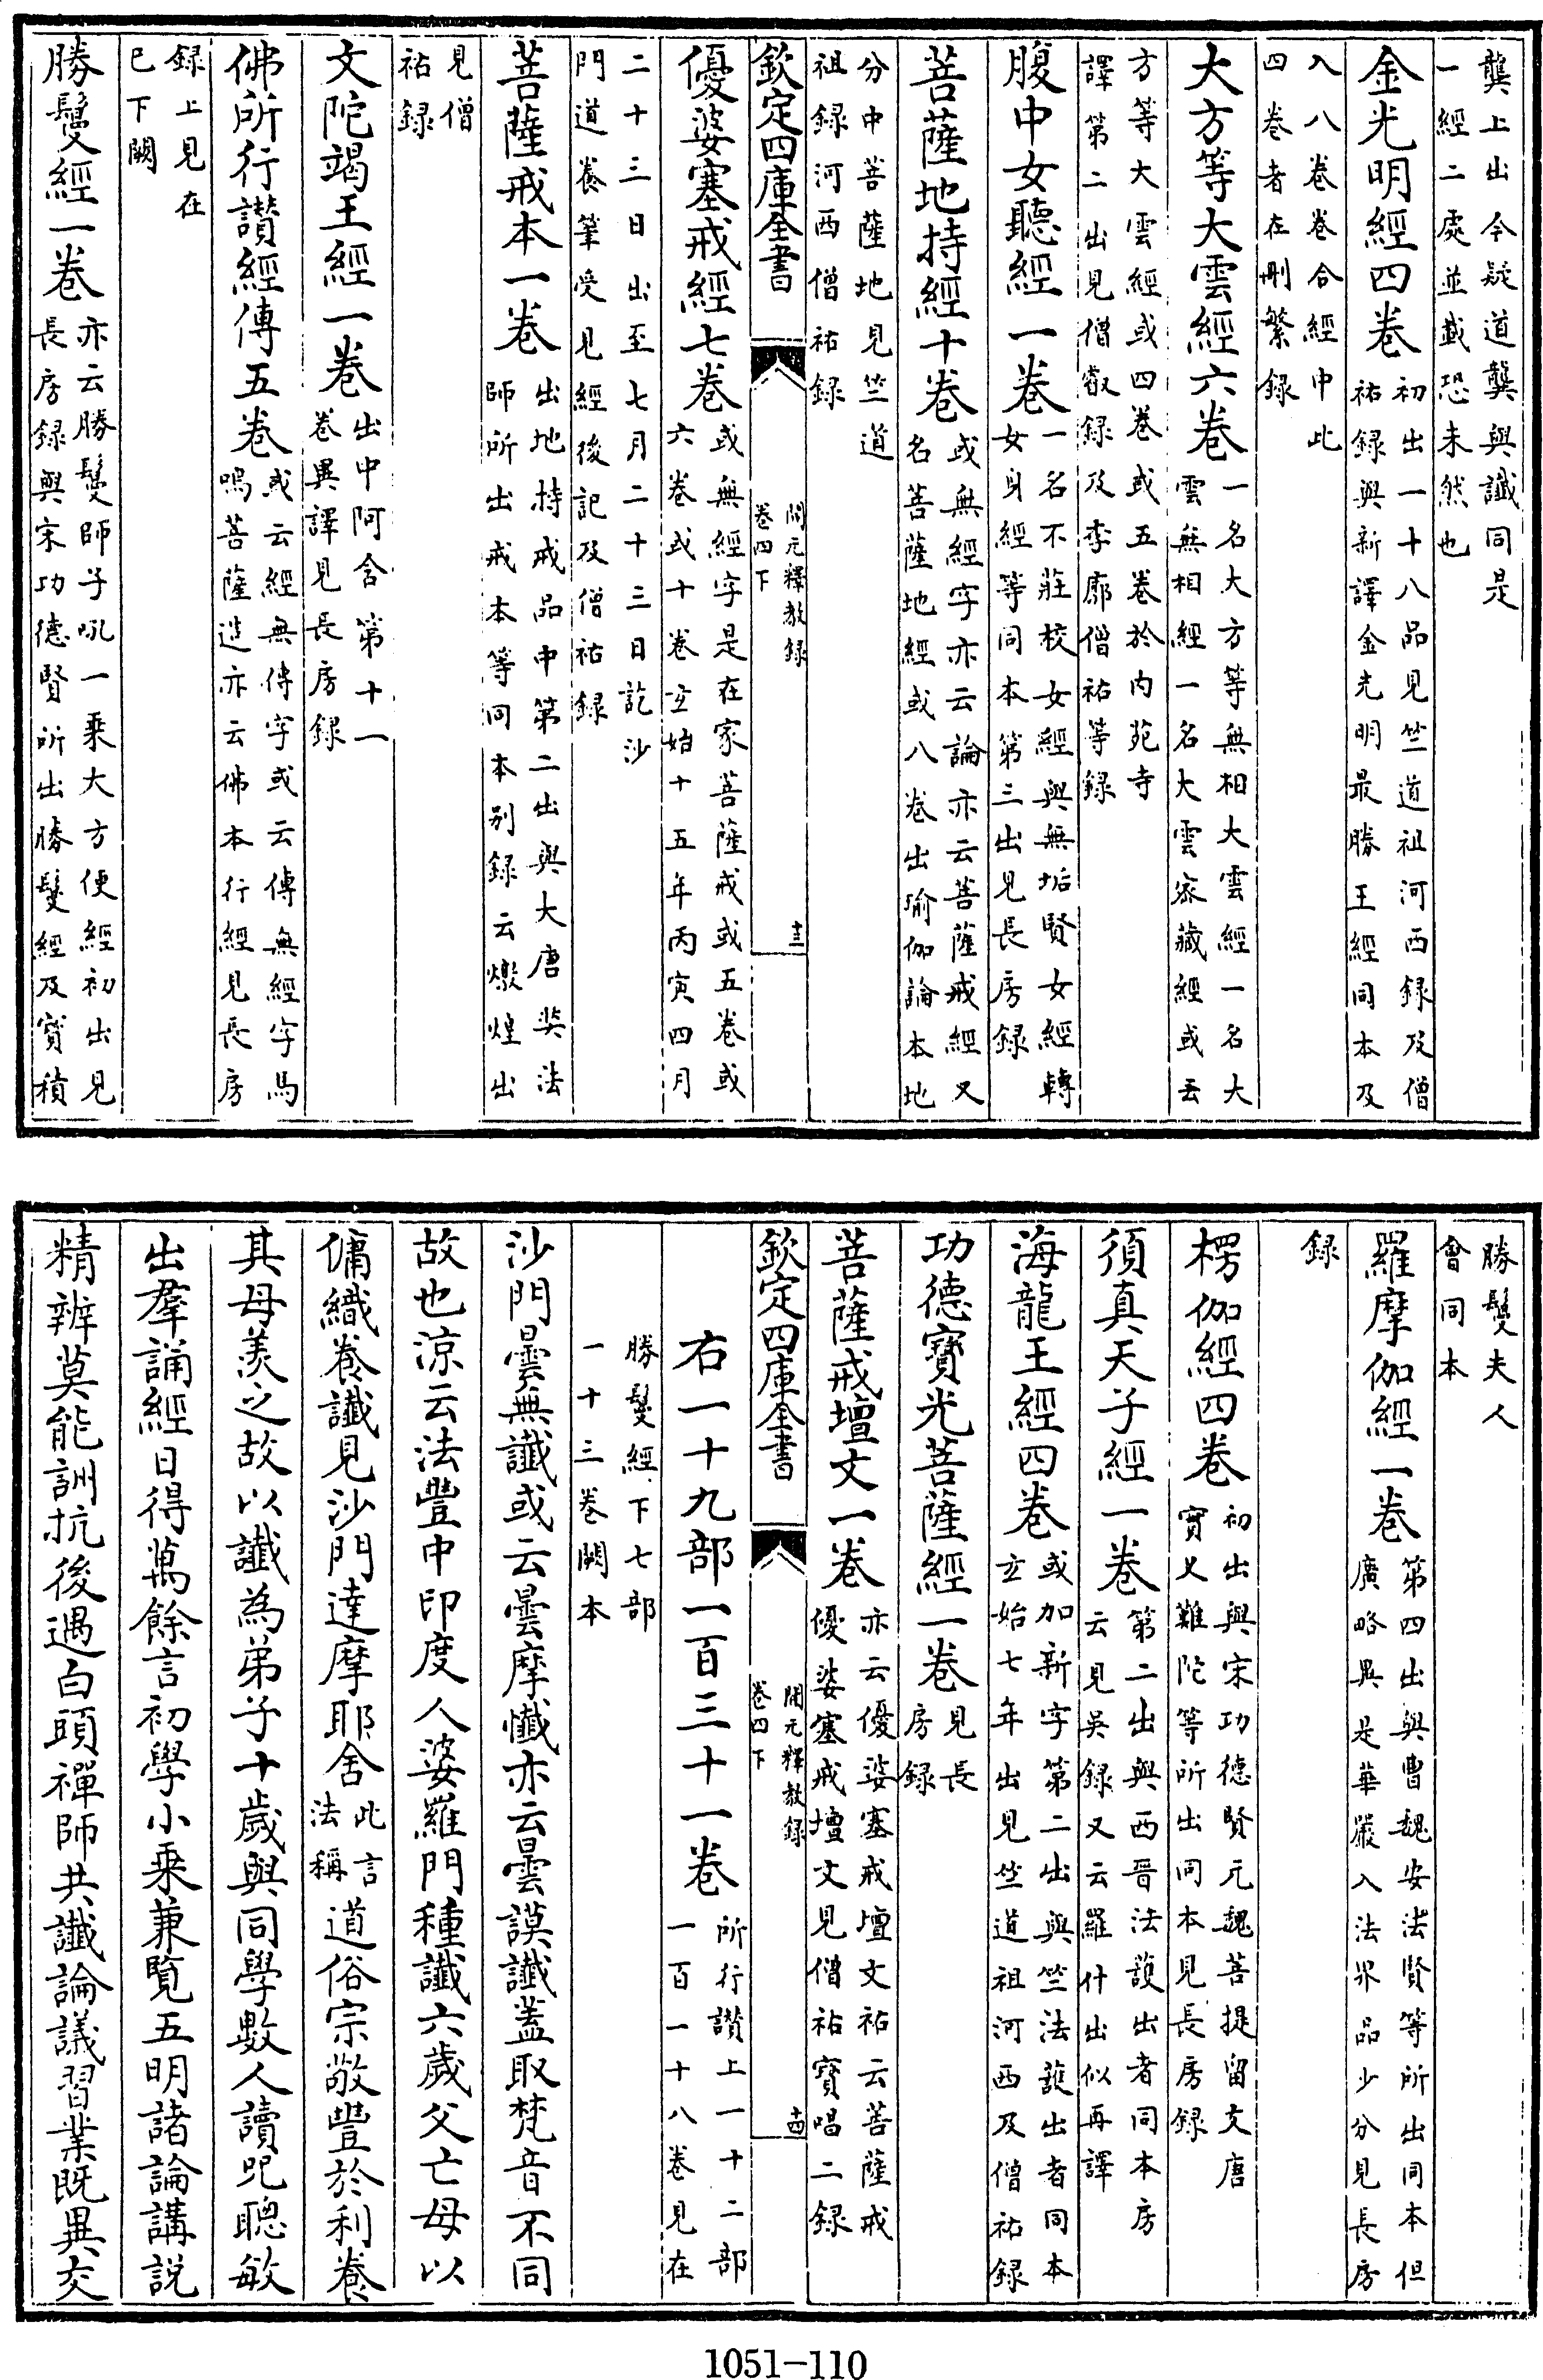 龔上出今疑道龔與讖同是
一經二處並載恐未然也
金光明經四卷初出一十八品見竺道祖河西録及僧
祐録與新譯金光明最勝王經同本及
入八卷卷合經中此
四卷者在刪繁録
大方等大雲經六卷一名大方等無相大雲經一名大
雲無相經一名大雲宻藏經或云
方等大雲經或四卷或五卷於内苑寺
譯第二出見僧叡録及李廓僧祐等録
腹中女聽經一卷一名不莊校女經與無垢賢女經轉
女身經等同本第三出見長房録
菩薩地持經十卷或無經字亦云論亦云菩薩戒經又
名菩薩地經或八卷出瑜伽論本地
分中菩薩地見竺道
祖録河西僧祐録
欽定四庫全書
開元釋教録
卷四下
十三
優婆塞戒經七卷或無經字是在家菩薩戒或五卷或
六卷或十卷𤣥始十五年丙寅四月
二十三日出至七月二十三日訖沙
門道養筆受見經後記及僧祐録
菩薩戒本一卷出地持戒品中第二出與大唐奘法
師所出戒本等同本别録云燉煌出
見僧
祐録
文陀竭王經一卷出中阿含第十一
卷異譯見長房録
佛所行讃經傳五卷或云經無傳字或云傳無經字馬
鳴菩薩造亦云佛本行經見長房
録上見在
已下闕
勝鬘經一卷亦云勝鬘師子吼一乗大方便經初出見
長房録與宋功德賢所出勝鬘經及寳積
勝鬘夫人
會同本
羅摩伽經一卷第四出與曹魏安法賢等所出同本但
廣略異是華嚴入法界品少分見長房
録
楞伽經四卷初出與宋功德賢元魏菩提留支唐
實叉難陀等所出同本見長房録
須真天子經一卷第二出與西晋法護出者同本房
云見吳録又云羅什出似再譯
海龍王經四卷或加新字第二出與竺法護出者同本
𤣥始七年出見竺道祖河西及僧祐録
功德寳光菩薩經一卷見長
房録
菩薩戒壇文一卷亦云優婆塞戒壇文祐云菩薩戒
優婆塞戒壇文見僧祐寳唱二録
欽定四庫全書
開元釋教録
卷四下
十四
右一十九部一百三十一卷所行讃上一十二部
一百一十八卷見在
勝鬘經下七部
一十三卷闕本
沙門曇無讖或云曇摩懺亦云曇謨讖葢取梵音不同
故也涼云法豐中印度人婆羅門種讖六歲父亡母以
傭織養讖見沙門達摩耶舍此言
法稱道俗宗敬豐於利養
其母羨之故以讖為弟子十歲與同學數人讀呪聰敏
出羣誦經日得萬餘言初學小乗兼覧五明諸論講説
精辨莫能詶抗後遇白頭禪師共讖論議習業既異交
1051-110